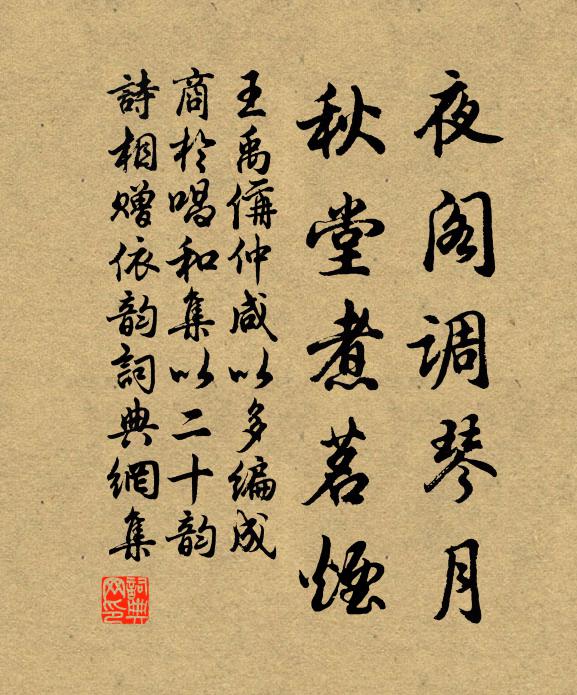 夜阁调琴月
秋堂煮茗煙
王禹偁仲咸以多编成
商於唱和集以二十韵
詩相赠依韵詞典網集